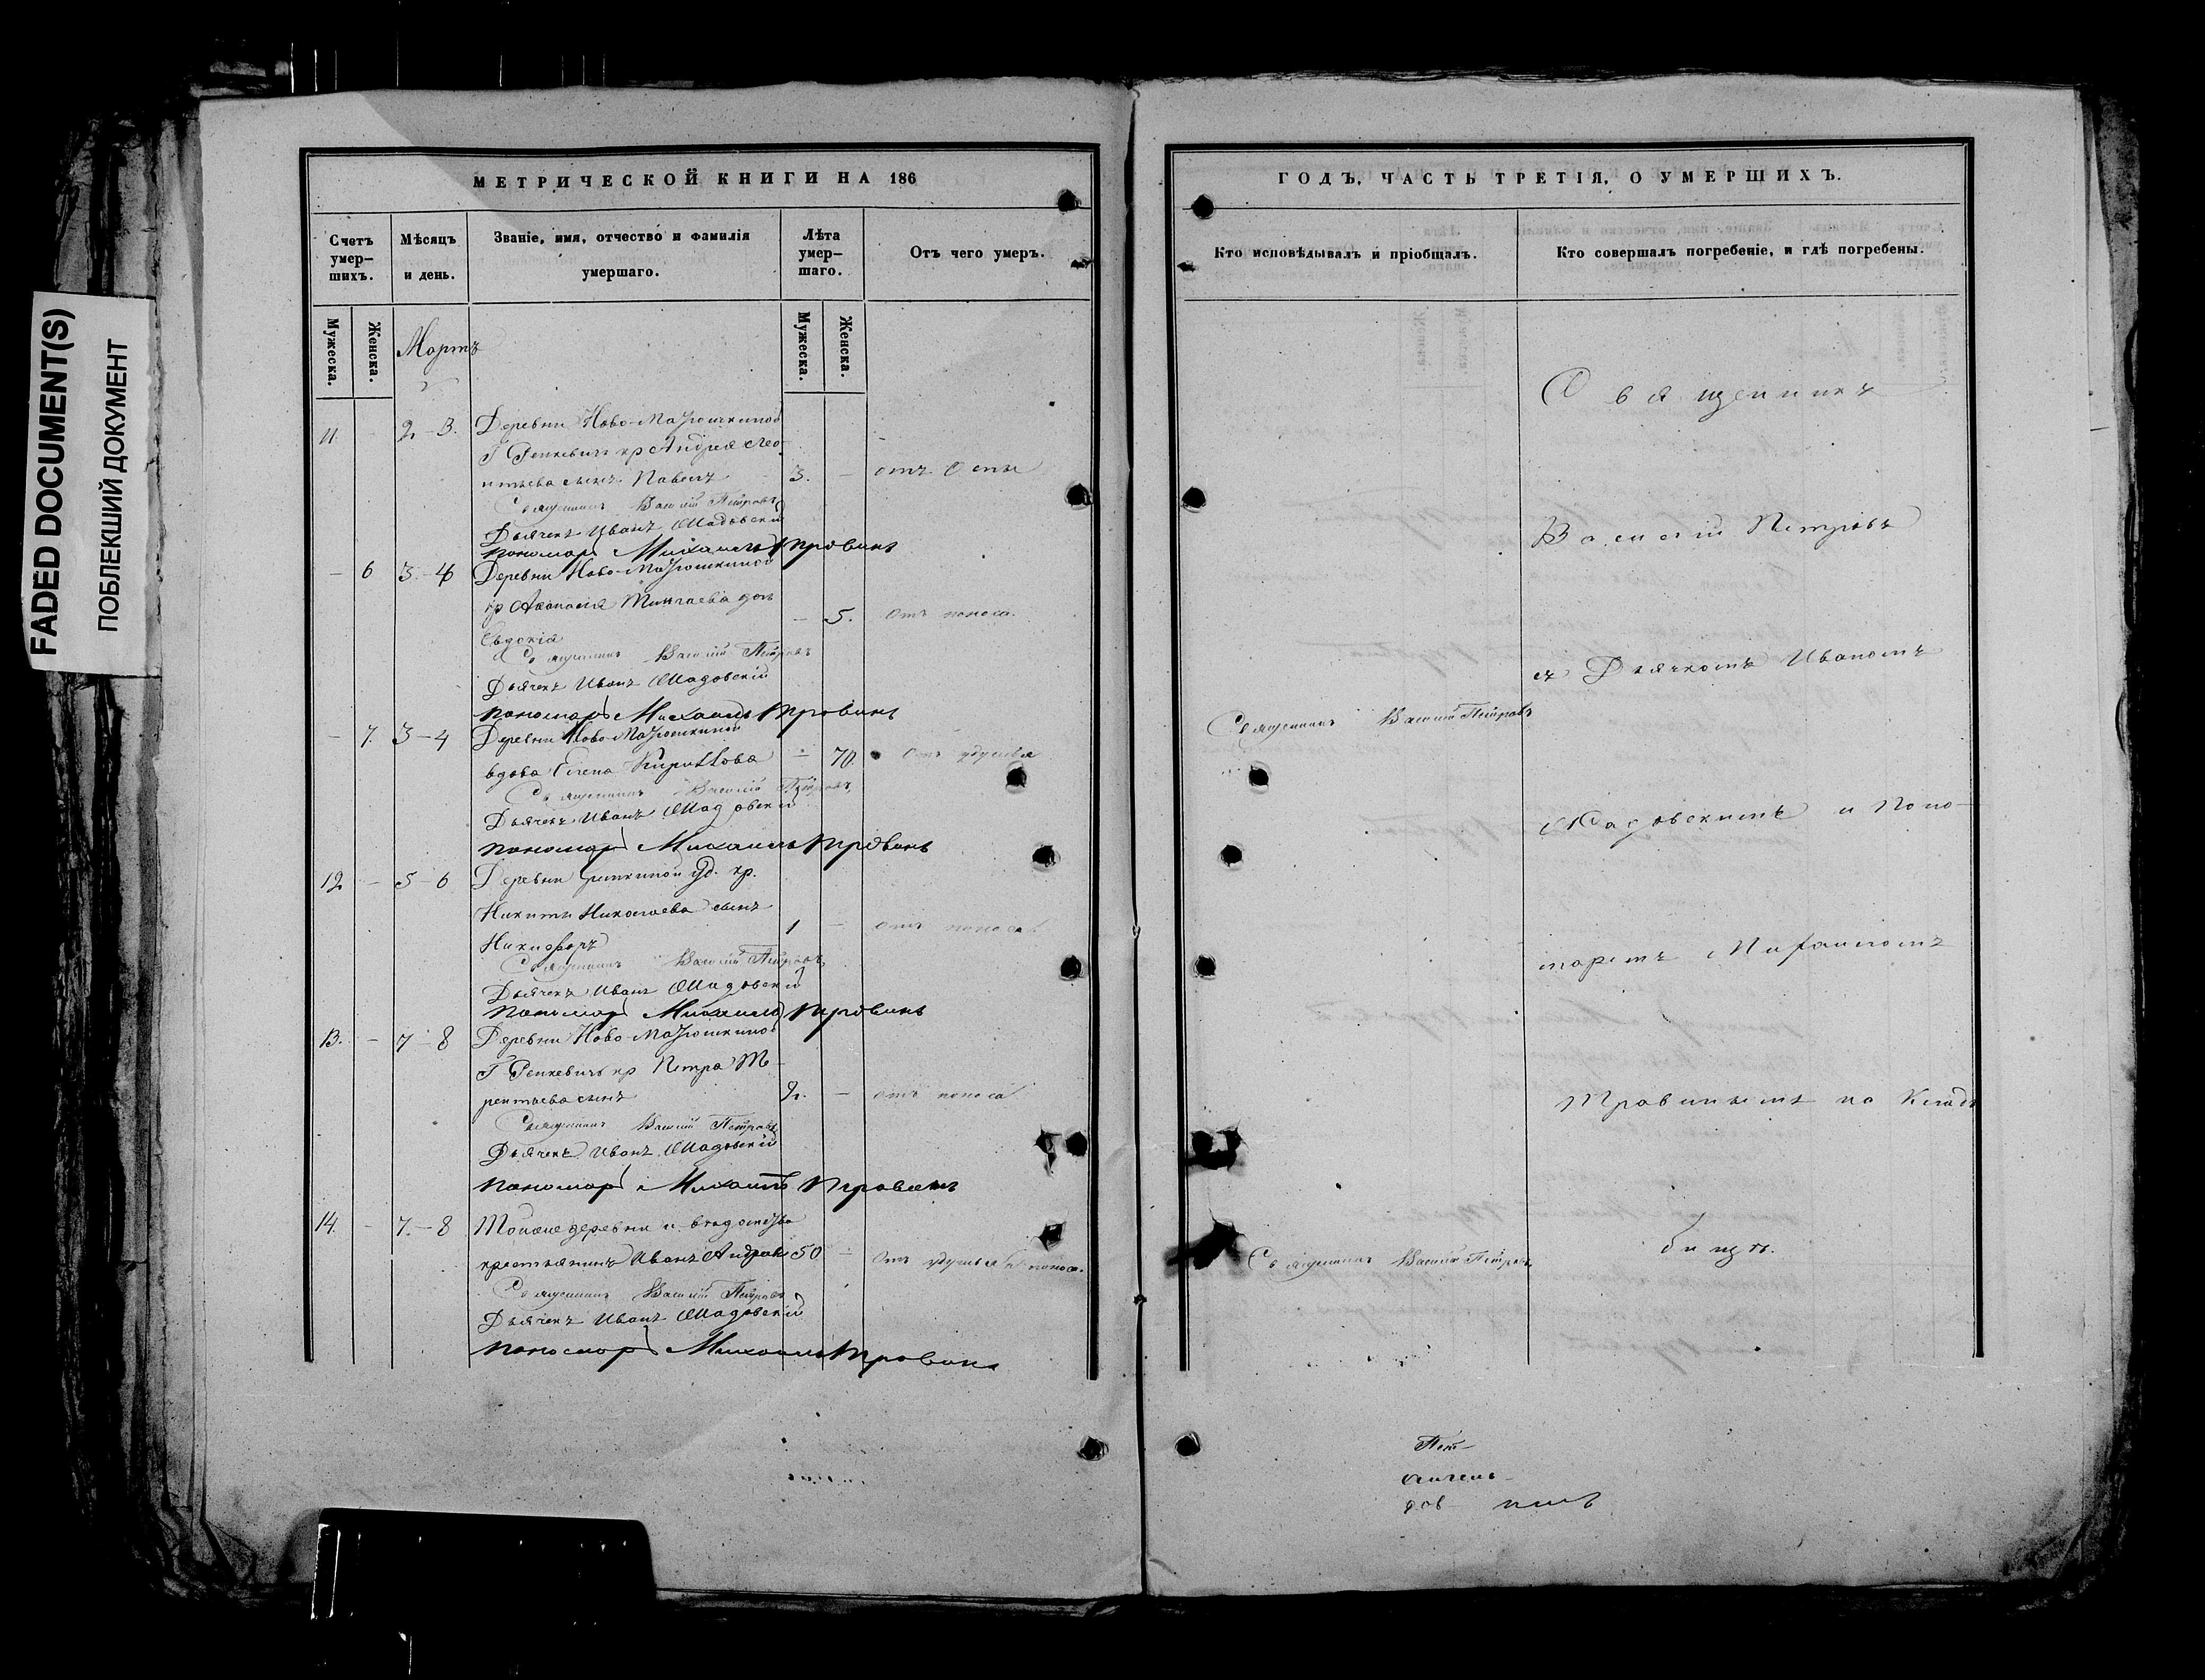 FADED DOCUMENT(S)
ПОБЛЕКШИЙ ДОКУМЕНТ
МЕТРИЧЕСКОЙ КНИГИ НА 186
Счетъ умер-
шихъ.
Мѣсяцъ
и день.
Званіе, имя, отчество и фамилія
умершаго.
Лѣта
умер-
шаго.
Отъ чего умеръ.
Мужеска.
Женска.
Мартъ
Мужеска.
Женска.
11. - 2-3. Деревни Ново-Матюшкиной
Г Ренкевичъ кр Андрея Лео-
нтьева сынъ Павелъ 3. - отъ Оспы
Священникъ Василій Петровъ
Дьячекъ Иванъ Жадовскій
Пономарь Михаилъ Травинъ
- 6 3-4 Деревни Ново-Матюшкиной
кр Афанасія дочь
Евдокія - 5. отъ поноса.
Священникъ Василій Петровъ
Дьячекъ Иванъ Жадовскій
Пономарь Михаилъ Травинъ
- 7. 3-4 Деревни Ново-Матюшкиной
вдова Елена Кириллова - 70. Отъ удушья
Священникъ Василій Петровъ
Дьячекъ Иванъ Жадовскій
Пономарь Михаилъ Травинъ
12 - 5-6 Деревни уд. кр.
Никиты Николаева сынъ
Никифоръ 1 - отъ поноса.
Священникъ Василій Петровъ
Дьячекъ Иванъ Жадовскій
Пономарь Михаилъ Травинъ
13. - 7-8 Деревни Ново-Матюшкиной
Г Ренкевичъ кр Петра Те-
рентьева сынъ 2. - отъ поноса
Священникъ Василій Петровъ
Дьячекъ Иванъ Жадовскій
Пономарь Михаилъ Травинъ
14. - 7-8 Тойже деревни и владельца
крестьянинъ Иванъ Андреевъ 50 - Отъ удушья и поноса.
Священникъ Василій Петровъ
Дьячекъ Иванъ Жадовскій
Пономарь Михаилъ Травинъ
ГОДЪ, ЧАСТЬ ТРЕТІЯ, О УМЕРШИХЪ.
Кто исповѣдывалъ и пріобщалъ.
Кто совершалъ погребеніе, и гдѣ погребены.
Священникъ
Василій Петровъ
съ Дьячкомъ Иваномъ
Священникъ Василій Петровъ
Жадовскимъ и Поно-
маремъ Михаиломъ
Травинымъ на Клад
бищѣ.
Священникъ Василій Петровъ